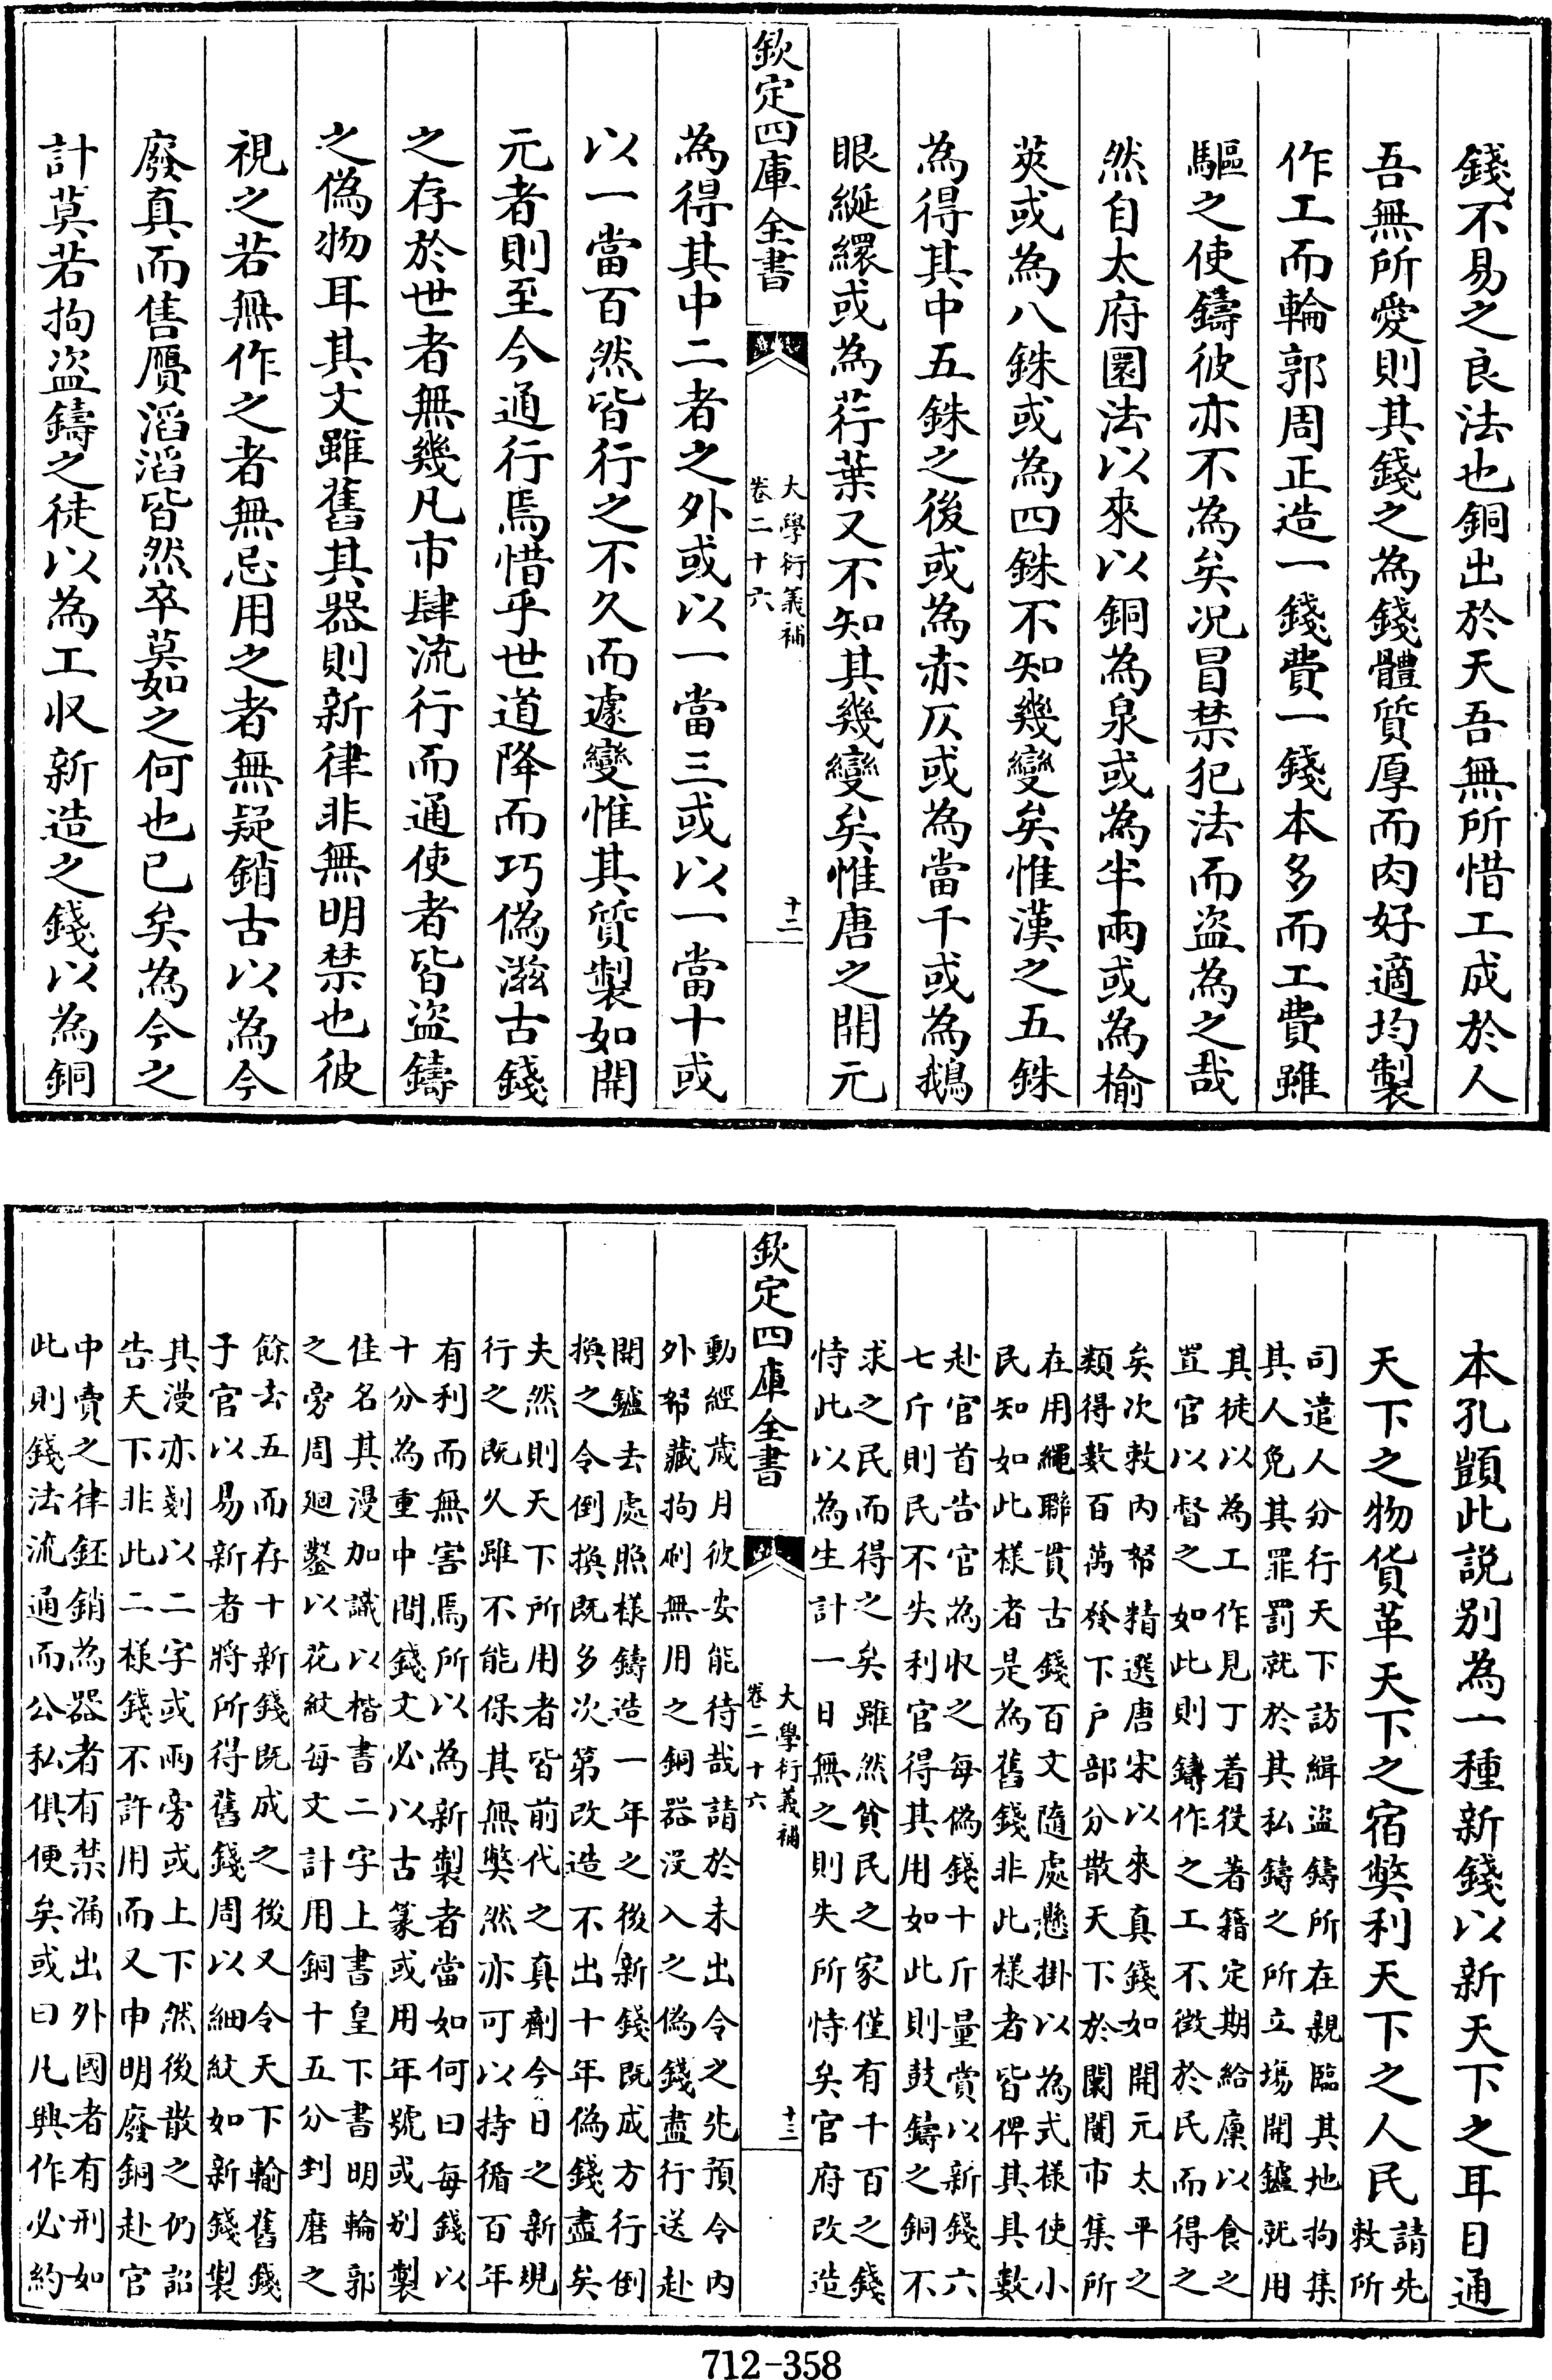 錢不易之良法也銅出於天吾無所惜工成於人
吾無所愛則其錢之為錢體質厚而肉好適均製
作工而輪郭周正造一錢費一錢本多而工費雖
驅之使鑄彼亦不為矣况冒禁犯法而盗為之哉
然自太府圜法以來以銅為泉或為半兩或為榆
莢或為八銖或為四銖不知幾變矣惟漢之五銖
為得其中五銖之後或為赤仄或為當千或為鵝
眼綖繯或為荇葉又不知其幾變矣惟唐之開元
欽定四庫全書
大學衍義補
卷二十六
十二
為得其中二者之外或以一當三或以一當十或
以一當百然皆行之不久而遽變惟其質製如開
元者則至今通行焉惜乎世道降而巧偽滋古錢
之存於世者無幾凡市肆流行而通使者皆盜鑄
之偽物耳其文雖舊其器則新律非無明禁也彼
視之若無作之者無忌用之者無疑銷古以為今
廢真而售贋滔滔皆然卒莫如之何也已矣為今之
計莫若拘盜鑄之徒以為工收新造之錢以為銅
本孔顗此說别為一種新錢以新天下之耳目通
天下之物貨革天下之宿獘利天下之人民請先
敕所
司遣人分行天下訪緝盜鑄所在親臨其地拘集
其人免其罪罰就於其私鑄之所立塲開鑪就用
其徒以為工作見丁着役著籍定期給廩以食之
置官以督之如此則鑄作之工不徵於民而得之
矣次敕内帑精選唐宋以來真錢如開元太平之
類得數百萬發下户部分散天下於闤闠市集所
在用繩聯貫古錢百文隨處懸掛以為式樣使小
民知如此樣者是為舊錢非此樣者皆俾其具數
赴官首告官為收之每偽錢十斤量賞以新錢六
七斤則民不失利官得其用如此則鼓鑄之銅不
求之民而得之矣雖然貧民之家僅有千百之錢
恃此以為生計一日無之則失所恃矣官府改造
欽定四庫全書
大學衍義補
卷二十六
十三
動經歲月彼安能待哉請於未出令之先預令内
外帑藏拘刷無用之銅器没入之偽錢盡行送赴
開鑪去處照樣鑄造一年之後新錢既成方行倒
換之令倒換既多次第改造不出十年偽錢盡矣
夫然則天下所用者皆前代之真劑今日之新規
行之既久雖不能保其無獘然亦可以持循百年
有利而無害焉所以為新製者當如何曰每錢以
十分為重中間錢文必以古篆或用年號或别製
佳名其漫加識以楷書二字上書皇下書明輪郭
之旁周廻鏨以花紋每文計用銅十五分剉磨之
餘去五而存十新錢既成之後又令天下輸舊錢
于官以易新者將所得舊錢周以細紋如新錢製
其漫亦刻以二字或兩旁或上下然後散之仍詔
告天下非此二樣錢不許用而又申明廢銅赴官
中賣之律鉟銷為器者有禁漏出外國者有刑如
此則錢法流通而公私俱便矣或曰凡興作必約
712-358